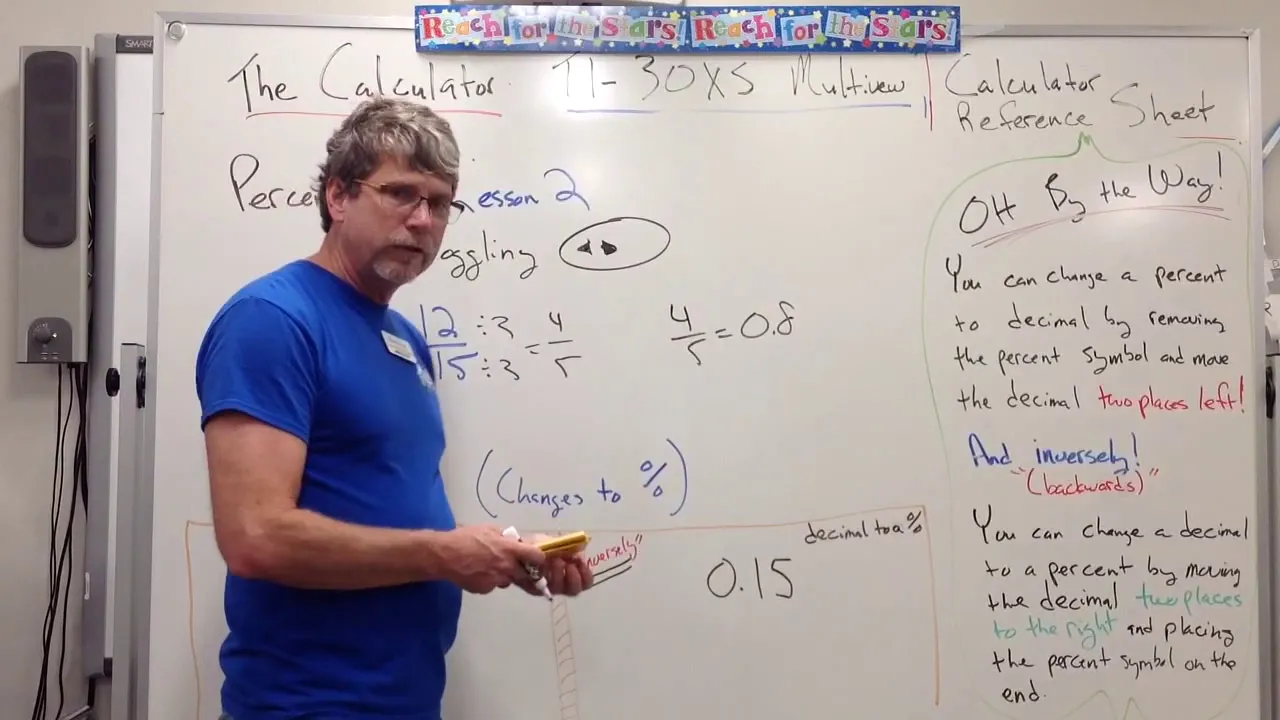 Reach for the Stars! Reach for the Stars!
SMART
The Calculator TI-30XS Multiview
Calculator
Reference Sheet
Lesson 2
12 ÷3 = 4
15 ÷3 5
4 = 0.8
5
(Changes to %)
decimal to a %
0.15
OH By the Way!
You can change a percent
to decimal by removing
the percent symbol and move
the decimal two places left!
And inversely!
"(backwards)"
You can change a decimal
to a percent by moving
the decimal two places
to the right and placing
the percent symbol on the
end.